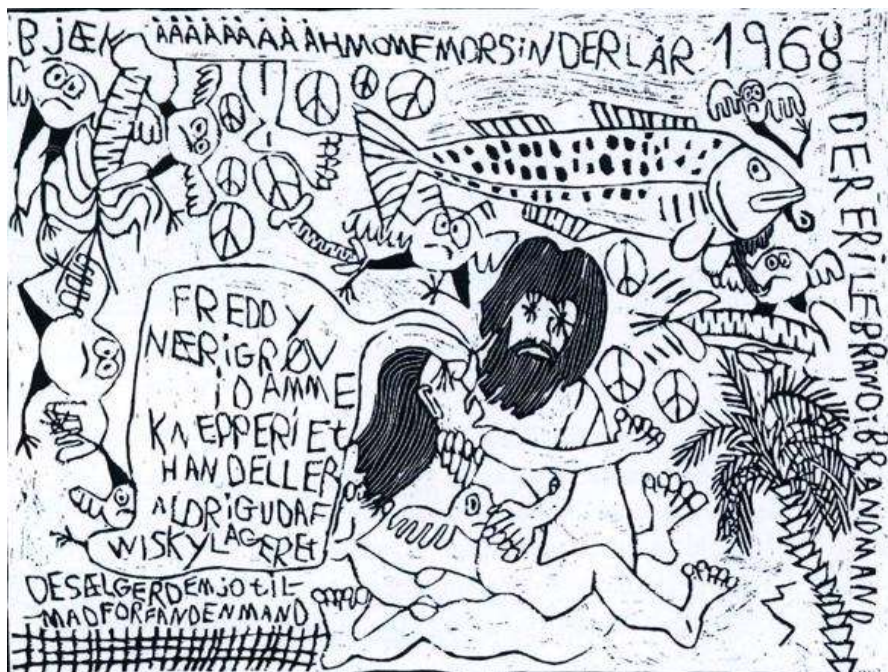 BJÆK ÅÅÅÅÅÅÅÅÅHMOMEMORSiNDERLÅR 1968
DERERiLEBRANDiBRANDMAND
FREDDY
NÆRiGRØV
iDAMME
KNEPPERiEt
HANDELLER
ALDRiGUDAF
WiSKYLAGEREt
DESÆLGERDEMJOtiL-
-MADFORFANDENMAND